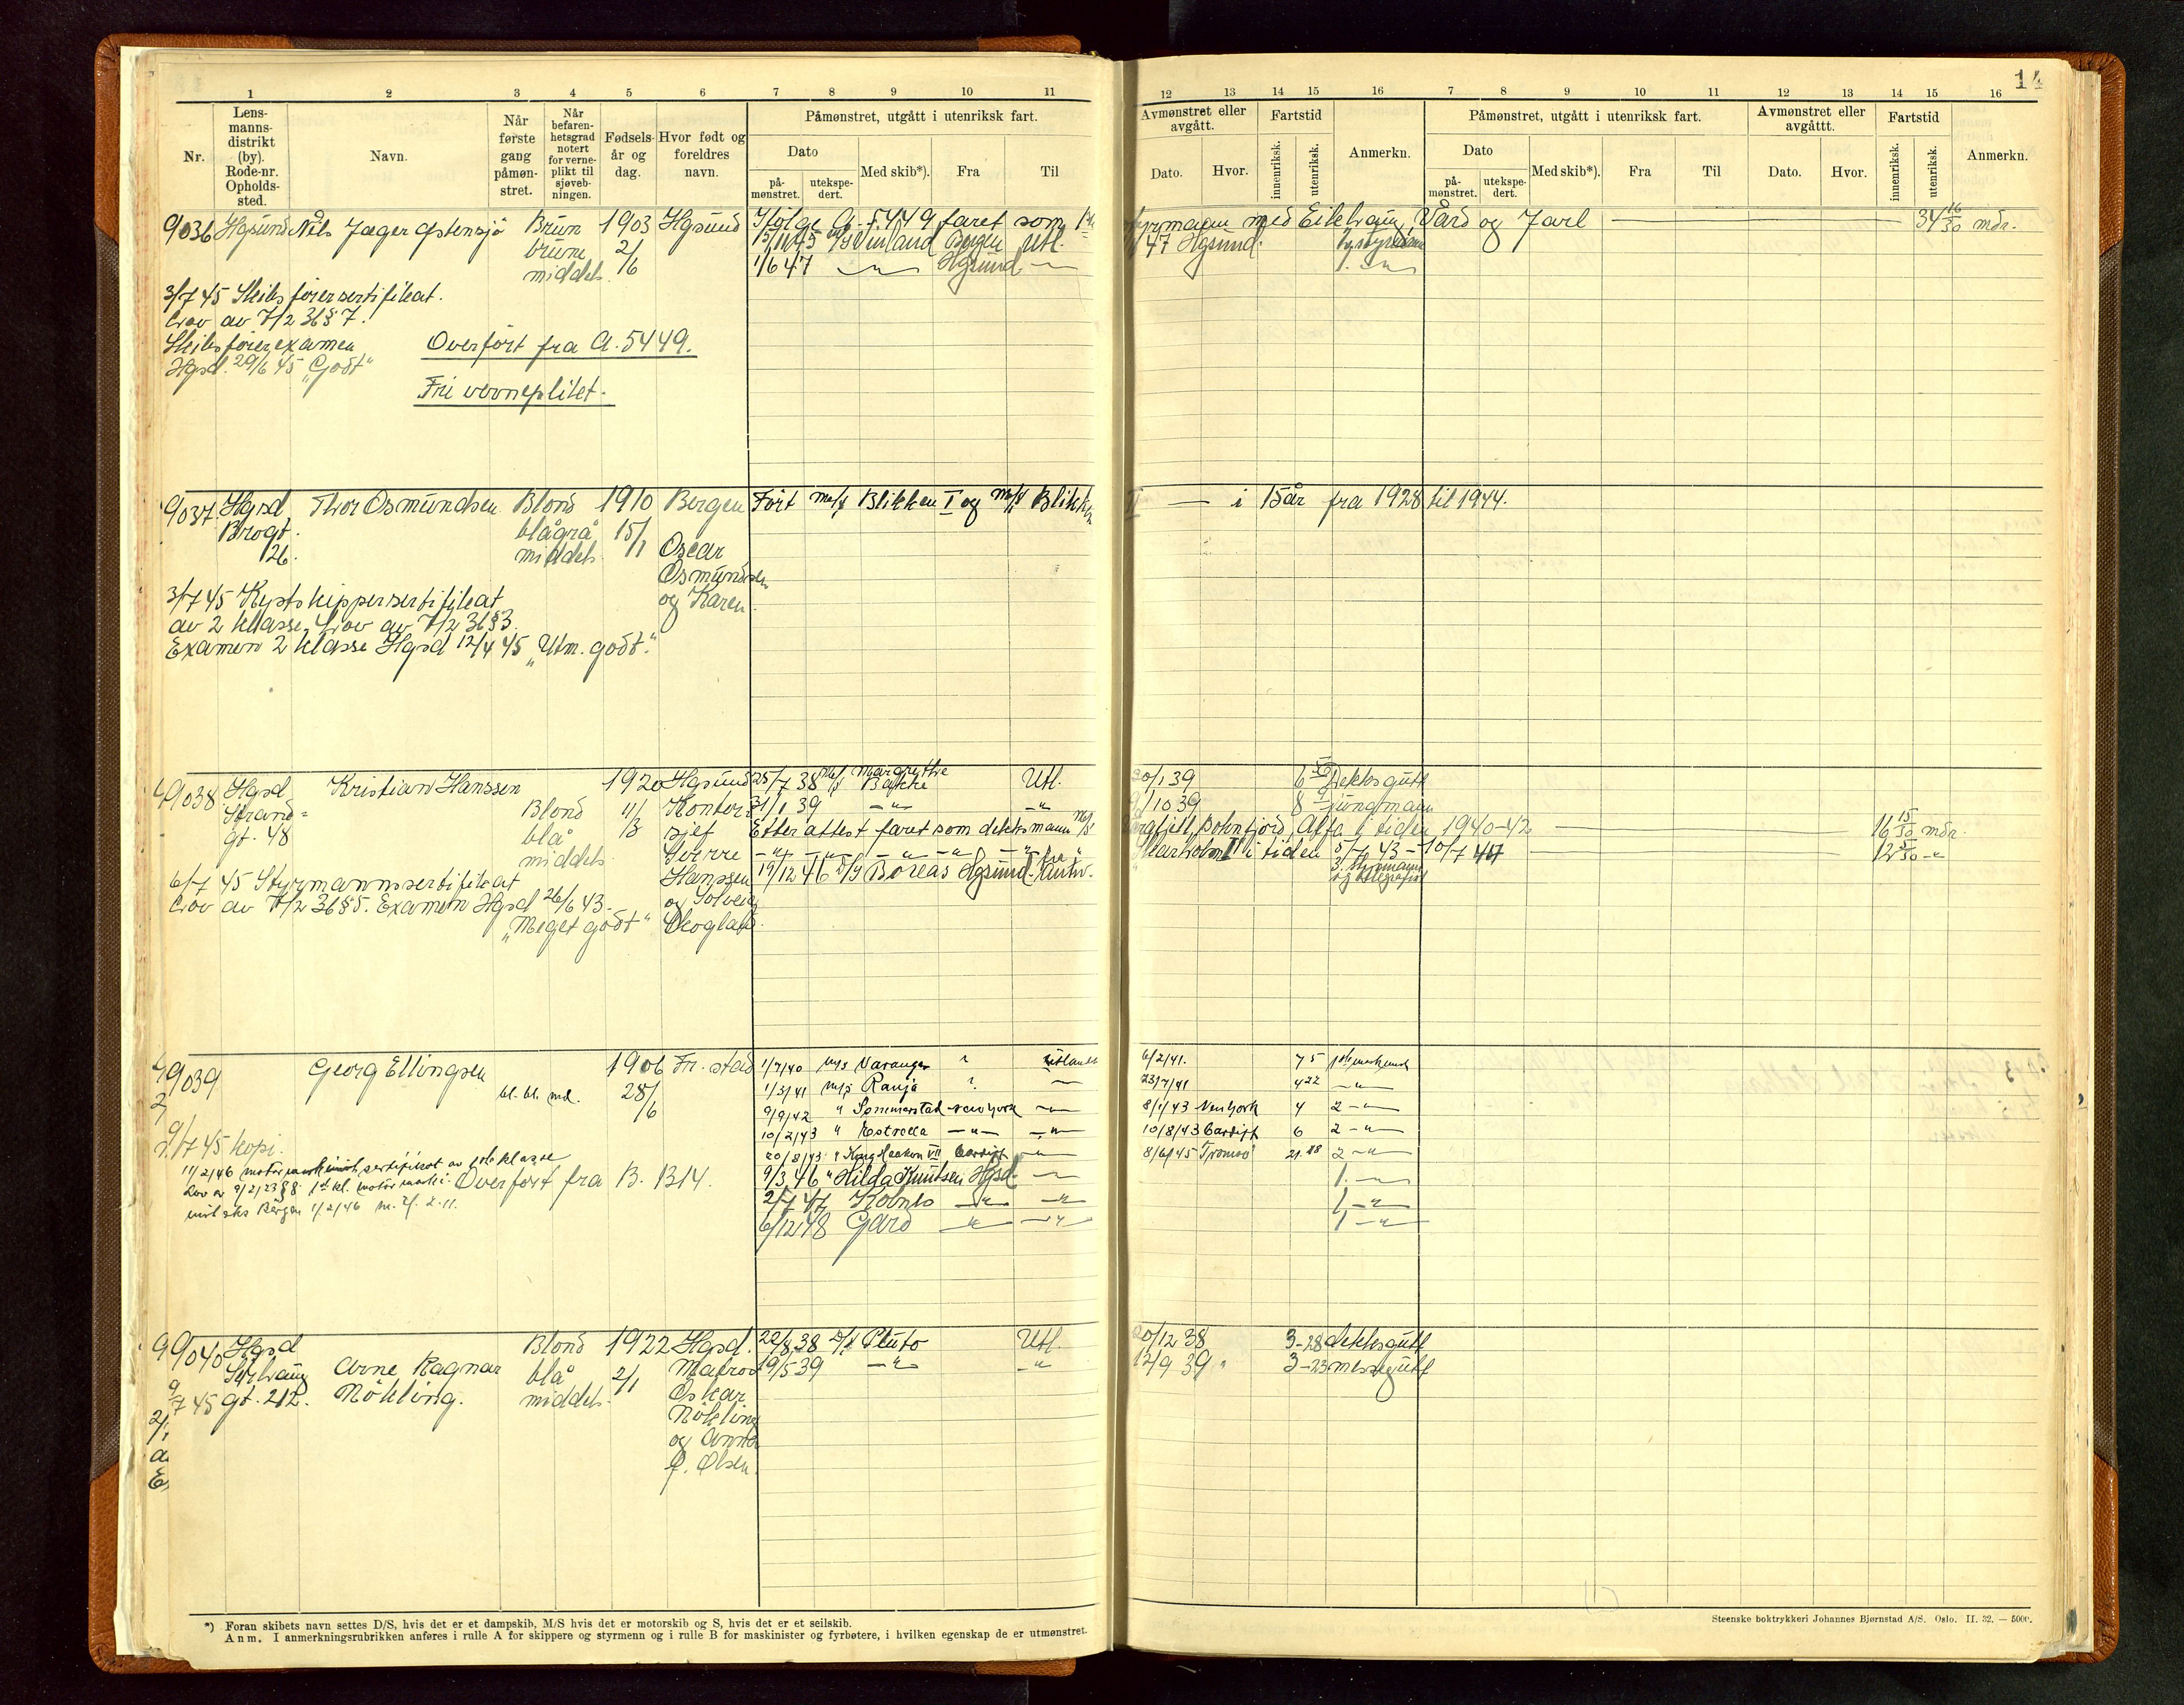 14
1 2 3 4 5 6 7 8 9 10 11
Nr.
Lens-
manns-
distrikt
(by).
Rode-nr.
Opholds-
sted.
Navn.
Når
første
gang
påmøn-
stret.
Når
befaren-
hetsgrad
notert
for verne-
plikt til
sjøveb-
ningen.
Fødsels-
år og
dag.
Hvor født og
foreldres
navn.
Påmønstret, utgått i utenriksk fart.
Dato
på-
mønstret.
utekspe-
dert.
Med skib*).
Fra
Til
12 13 14 15 16 7 8 9 10 11 12 13 14 15 16
Avmønstret eller
avgått.
Dato.
Hvor.
Fartstid
innenriksk.
utenriksk.
Anmerkn.
Påmønstret, utgått i utenriksk fart.
Dato
på-
mønstret.
utekspe-
dert.
Med skib*).
Fra
Til
Avmønstret eller
avgåttt.
Dato.
Hvor.
Fartstid
innenriksk.
utenriksk.
Anmerkn.
9036 Hgsund Nils Jæger Østensjö Brun 1903 Hgsund Ifölge A-5449 faret som 1st
styrmann med Eikhaug, Vard og Jarl 34 16/30 mdr.
brune 2/6 Vinland Bergen Utl.
47 Hgsund.
middels 1/6 47 —"— Hgsund —"—
3/7 45 Skibsförersertifikat.
Lov av 7/2 36 § 7.
Skibsförerexamen
Hgsd. 29/6 45 „Godt"
Overfört fra A. 5449.
Fri verneplikt.
9037 Hgsd Thor Osmundsen Blond 1910 Bergen Fört m/s Blikken I og m/s Blikken
II — i 15 år fra 1928 til 1944.
Brogt.
126.
blågrå 15/1
middels Oscar
Osmundsen
og Karen.
3/7 45 Kystskippersertifikat
av 2 klasse, Lov av 7/2 36 § 3.
Examen 2 klasse Hgsd 12/4 45 „Utm. godt."
9038 Hgsd Kristian Hanssen 1920 Hgsund 25/7 38 m/s Margrethe Bakke Utl.
39 6 Dekksgutt
Strand-
gt. 48
Blond 11/ Kontor- 31/1 39 —"— —"—
10 39 8 jungmann
blå sjef Etter attest faret som dekksmann m/s
Alfa i tiden 1940-42 16 15/30 mdr.
middels Sverre —"— —"— —"— —"—
Skarholm II i tiden 5/7 43 - 10/7 44 12 5/30 —"—
Hanssen 19/12 46 D/S Boreas Hgsund. Antw.
3. styrmann
og telegrafist
og Solveig
Skogland.
6/7 45 Styrmannssertifikat
Lov av 7/2 36 § 5. Examen Hgsd 26/6 43.
„Meget godt"
9039 Georg Ellingsen 1906 Fr. stad 1/7/40 m/s Varanger ? Utlandet
6/2/41. 7 5
bl. bl. md. 28/6
1/3/41 m/s Ranja ? —"—
23/7/41 4 22 —"—
9/9/42 " Sommerstad New York —"—
8/1/43 New York 4 2 —"—
10/2/43 " Estrella —"— —"—
10/8/43 Cardiff 6 2 —"—
20/8/43 " Kong Haakon VII Cardiff —"—
8/6/45 Tromsö 21.18 2 —"—
9/3 46 " Hilda Knutsen Hgsd. —"—
1. —"—
2/7 47 Kobnlo —"— —"—
1. —"—
6/12 48 Gard —"— —"—
1 —"—
9/7 45 kopi.
11/2/46 sertifikat av 1ste klasse
Lov av 9/2/23 § 8. 1st kl.
Bergen 1/2/46
Overfört fra B. 1314.
9040 Hgsd Arne Ragnar Nökling. Blond 1922 Hgsd. 22/8 38 D/S Pluto Utl.
20/12 38 3-28 dekksgutt
blå 2/1 Matros 19/5 39 —"— —"—
12/9 39 " 3-23 messegutt
gt. 212.
middels. Oskar
Nökling
og Anna
f. Olsen.
9/7 45
*) Foran skibets navn settes D/S, hvis det er et dampskib, M/S hvis det er motorskib og S, hvis det er et seilskib.
Anm. I anmerkningsrubrikken anføres i rulle A for skippere og styrmenn og i rulle B for maskinister og fyrbøtere, i hvilken egenskap de er utmønstret.
Steenske boktrykkeri Johannes Bjørnstad A/S. Oslo. II. 32. — 5000.